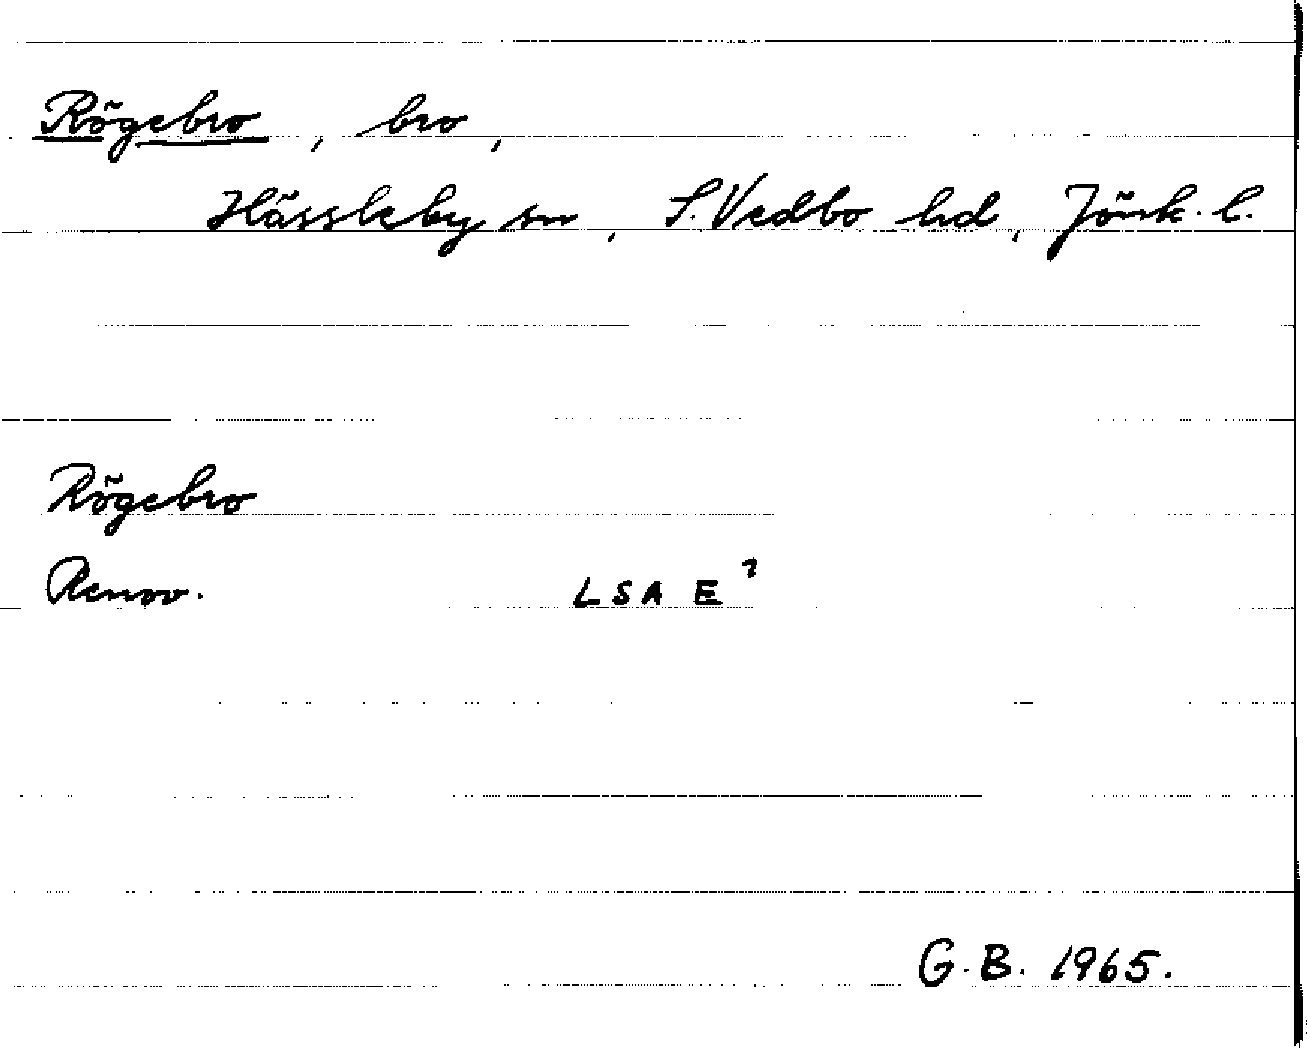 Rögebro, bro,
Hässleby sn, S. Vedbo hd, Jönk. l.
Rögebro
Renov. LSA E⁷
G.B. 1965.